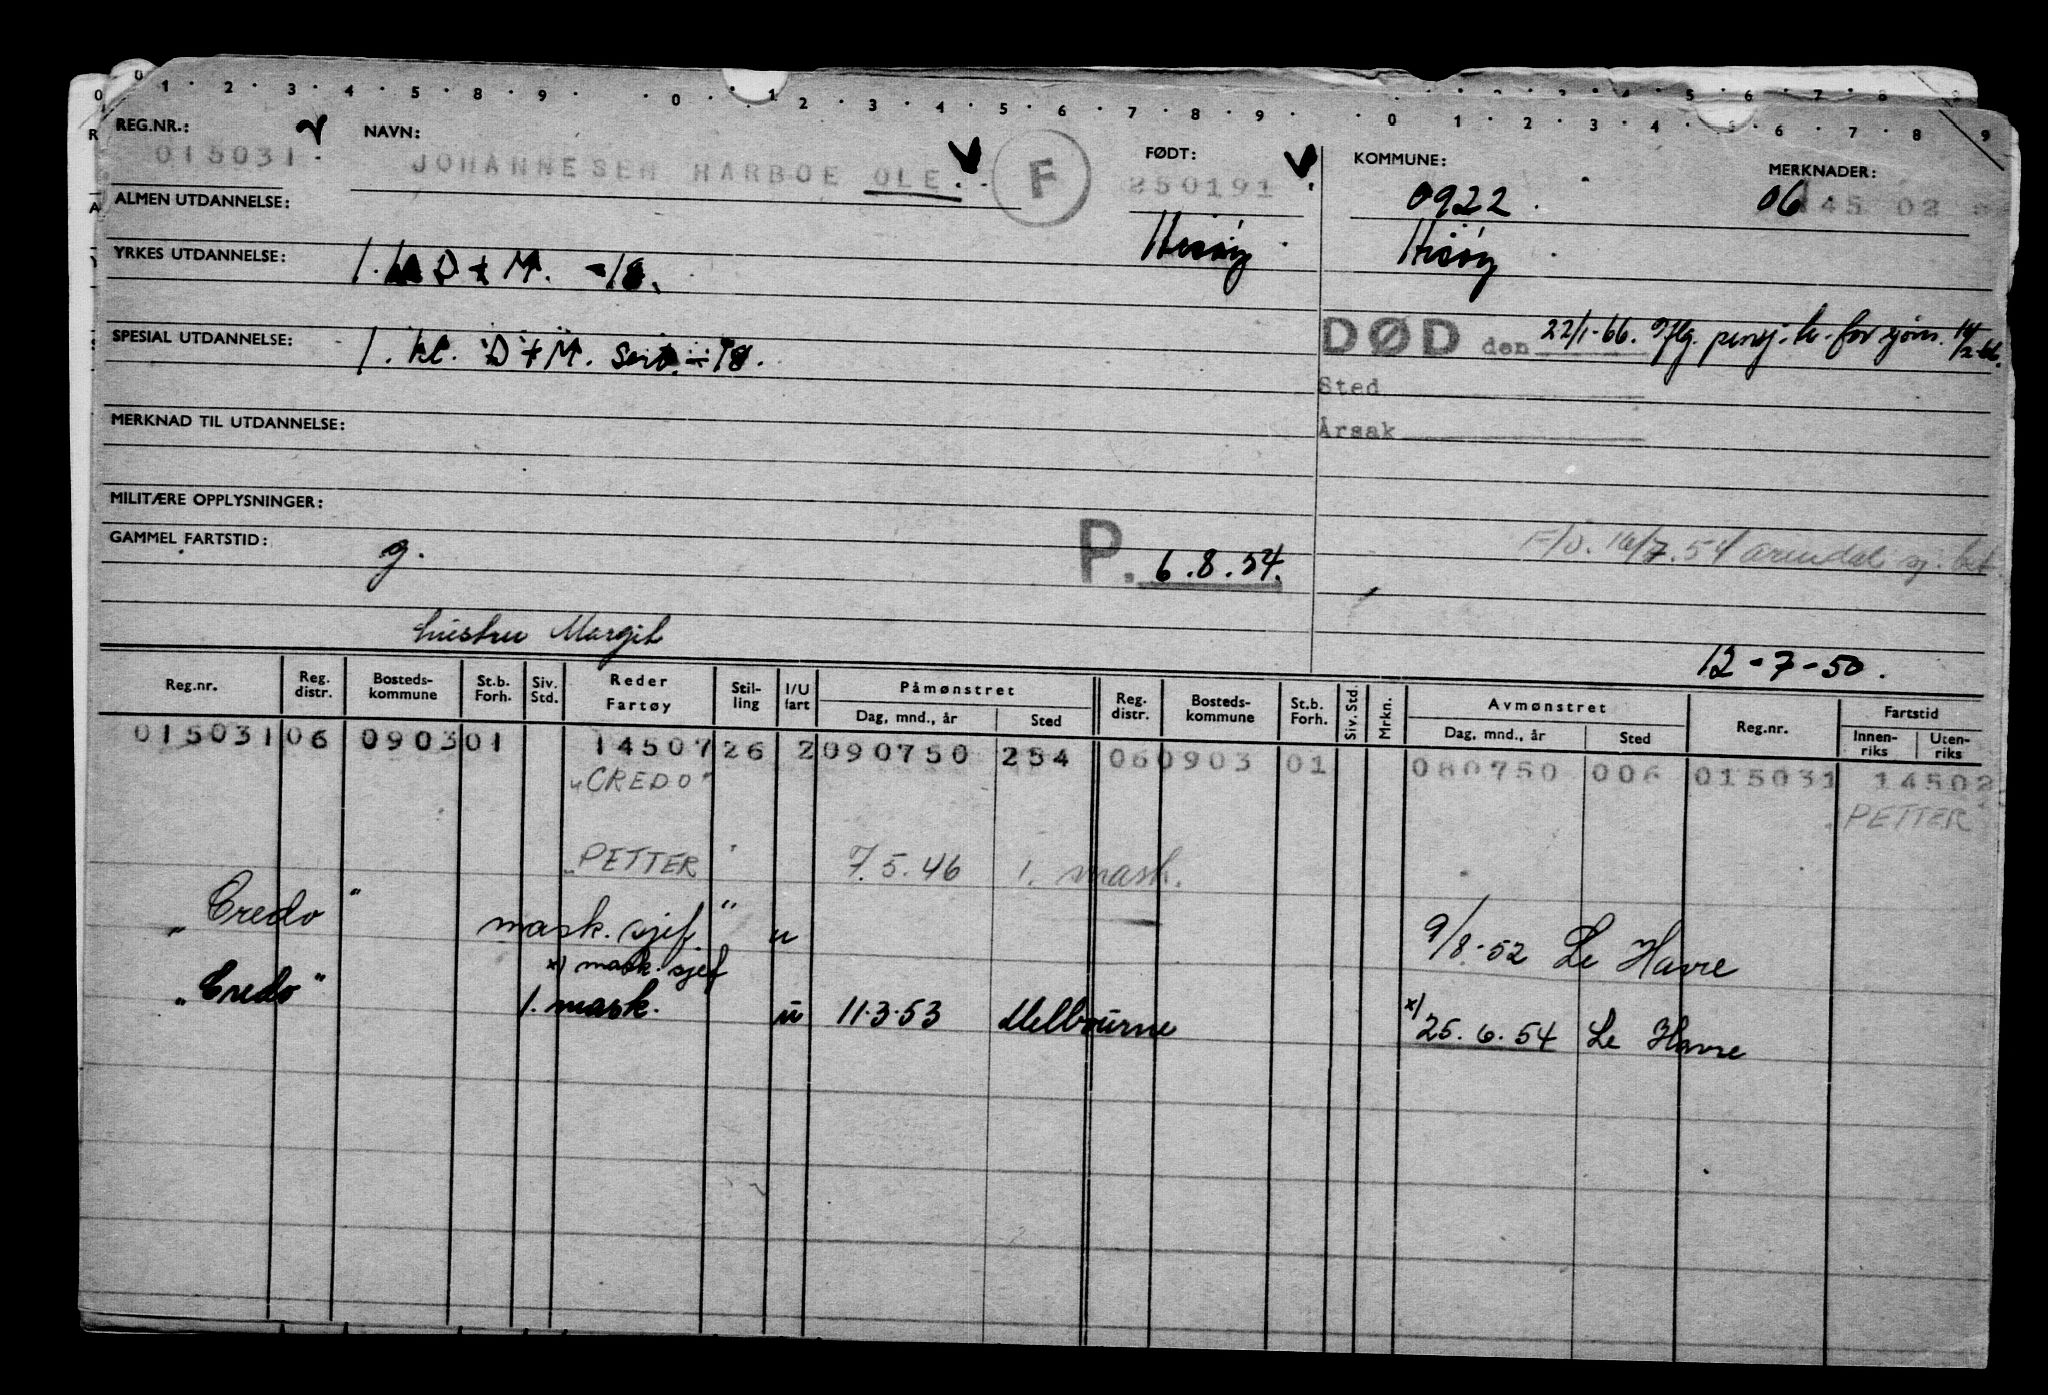 REG.NR.: 015031.
NAVN: JOHANNESEN HARBOE OLE. F
FØDT: 250191
Hisøy
KOMMUNE: 0922
Hisøy
MERKNADER: 06 145 02
ALMEN UTDANNELSE:
YRKES UTDANNELSE: 1. kl D + M. -18.
SPESIAL UTDANNELSE: 1. kl. D + M. sert. -18.
DØD den 22/1-66. Iflg. pensj. tr. for sjøm. 14/2-66.
Sted
Årsak
MERKNAD TIL UTDANNELSE:
MILITÆRE OPPLYSNINGER:
GAMMEL FARTSTID: g.
P. 6.8.54.
F/O. 16/7.54 Arendal sj.
hustru Margit
12-7-50.
Reg.nr. Reg. distr. Bosteds-kommune St.b. Forh. Siv. Std. Reder Fartøy Stil-ling I/U fart Påmønstret Dag, mnd., år Sted Reg. distr. Bosteds-kommune St.b. Forh. Siv. Std. Mrkn. Avmønstret Dag, mnd., år Sted Reg.nr. Fartstid Innen-riks Uten-riks
015031 06 0903 01 14507 26 2 090750 254 06 0903 01 080750 006 015031 14502
"CREDO" "PETTER"
"PETTER" 7.5.46 1. mask.
"Credo" mask. sjef " u 9/8-52 Le Havre
x) mask. sjef
"Credo" 1. mask. u 11.3.53 Melbourne x) 25.6.54 Le Havre